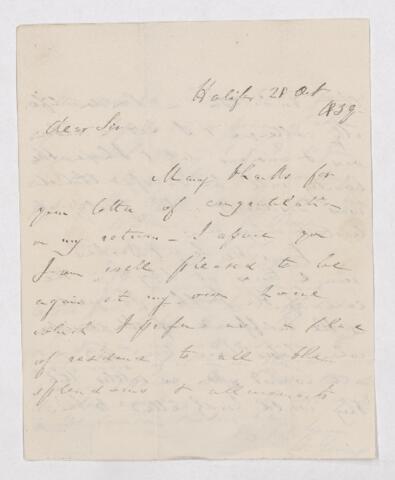 Halifx 28 Oct
1839
Dear Sir
Many thanks for
your letter of congratulation
on my return – I assure you
I am well pleased to be
again at my own home
which I prefer as a place
of residence to all the
splendours & allurements